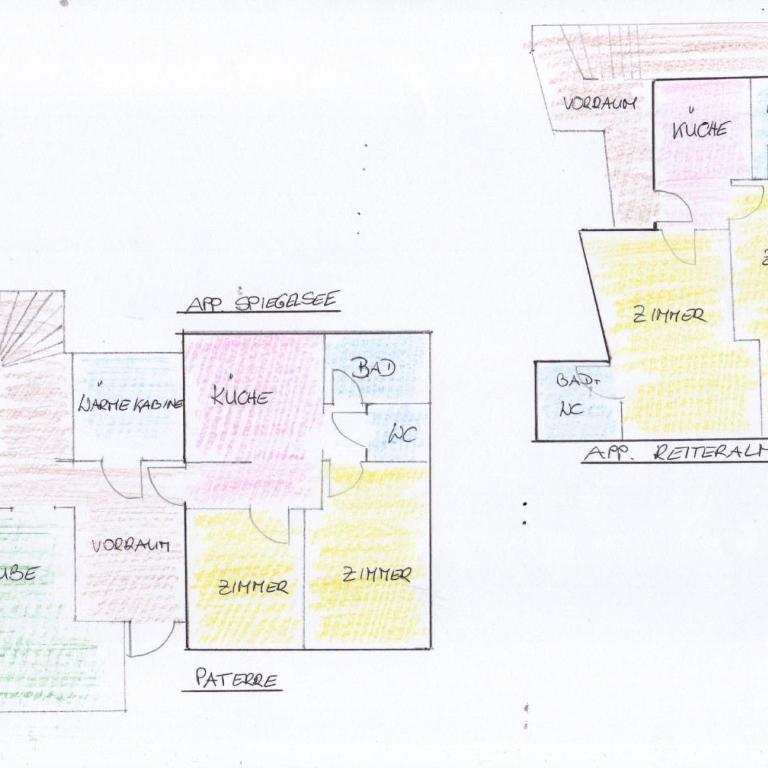 VORRAUM
KÜCHE
ZIMMER
BAD+
WC
APP. REITERALM
APP. SPIEGELSEE
WÄRMEKABINE
KÜCHE
BAD
WC
VORRAUM
ZIMMER
ZIMMER
PATERRE